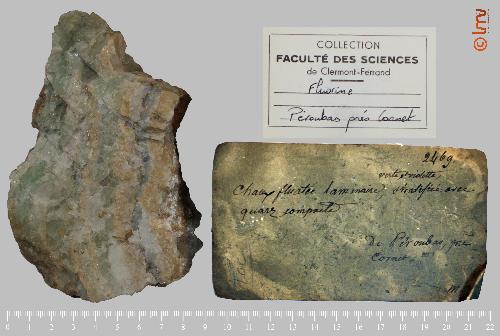 COLLECTION
FACULTÉ DES SCIENCES
de Clermont-Ferrand
Fluorine
Péroubas près Cornet
2469
verte et violette
Chaux fluatée laminaire, stratifiée avec
quarz compacte
de Péroubas, près
Cornet
0 1 2 3 4 5 6 7 8 9 10 11 12 13 14 15 16 17 18 19 20 21 22
© lmv